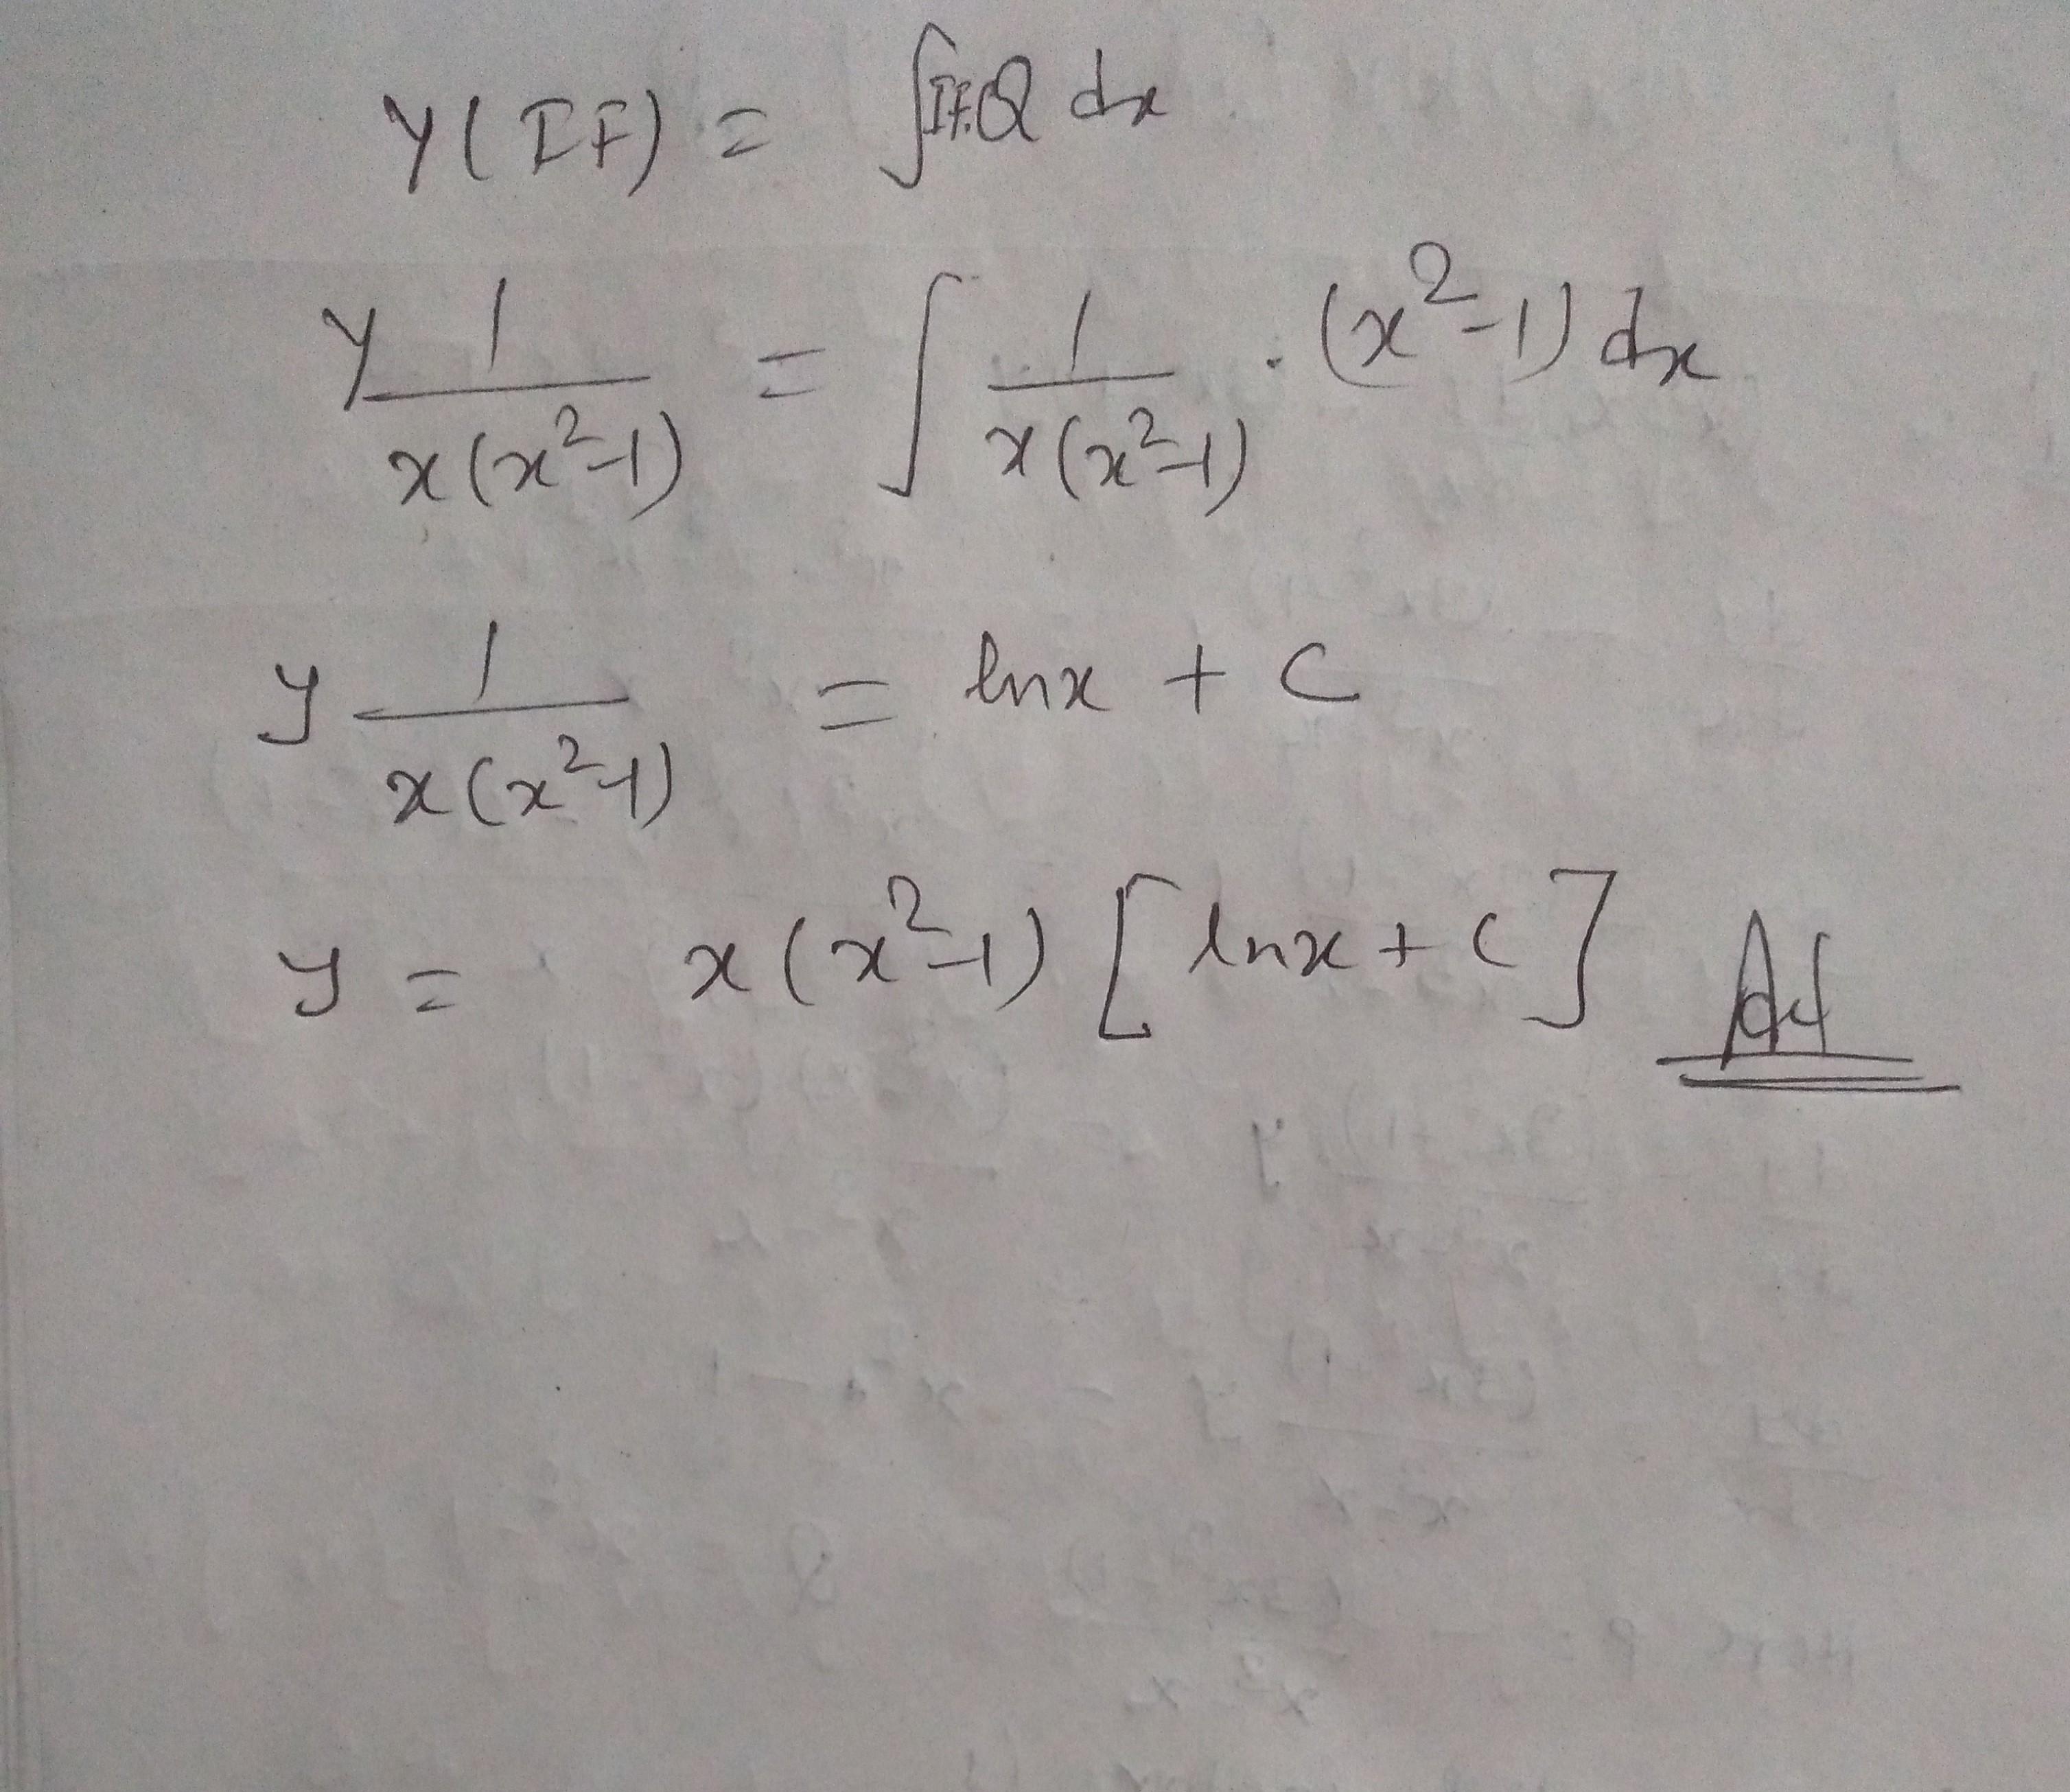 y(IF) = ∫IF.Q dx
y 1/x(x²-1) = ∫ 1/x(x²-1) . (x²-1) dx
y 1/x(x²-1) = lnx + C
y = x(x²-1) [lnx + C]